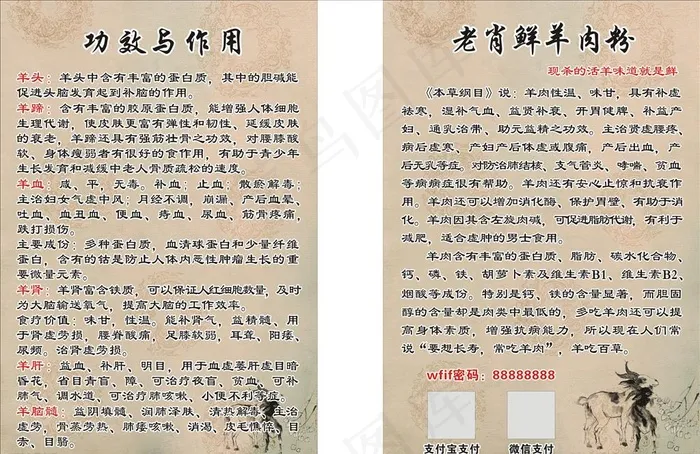 功效与作用
羊头：羊头中含有丰富的蛋白质，其中的胆碱能
促进头脑发育起到补脑的作用。
羊蹄：含有丰富的胶原蛋白质，能增强人体细胞
生理代谢，使皮肤更富有弹性和韧性、延缓皮肤
的衰老，羊蹄还具有强筋壮骨之功效，对腰膝酸
软、身体瘦弱者有很好的食疗作用，有助于青少年
生长发育和减缓中老人骨质疏松的速度。
羊血：咸、平、无毒。补血；止血；散瘀解毒；
主治妇女气虚中风；月经不调、崩漏、产后血晕、
吐血、血丑血、便血、痔血、尿血、筋骨疼痛，
跌打损伤。
主要成份：多种蛋白质，血清球蛋白和少量纤维
蛋白，含有的钴是防止人体内恶性肿瘤生长的重
要微量元素。
羊肾：羊肾富含铁质，可以保证人红细胞数量，及时
为大脑输送氧气，提高大脑的工作效率。
食疗价值：味甘，性温。能补肾气，益精髓，用
于肾虚劳损，腰脊酸痛，足膝软弱，耳聋、阳痿、
尿频。治肾虚劳损。
羊肝：益血、补肝、明目，用于血虚萎肝虚目暗
昏花，省目青盲、障，可治疗夜盲，贫血，可补
肺气，调水道，可治疗肺咳嗽，小便不利等症。
羊脑髓：益阴填髓，润肺泽肤，清热解毒，主治
虚劳，骨蒸劳热，肺痿咳嗽，消渴、皮毛憔悴、目
赤、目翳。
老肖鲜羊肉粉
现杀的活羊味道就是鲜
《本草纲目》说：羊肉性温、味甘，具有补虚
祛寒，温补气血、益肾补衰、开胃健脾、补益产
妇、通乳治带、助元益精之功效。主治肾虚腰疼、
病后虚寒、产妇产后体虚或腹痛，产后出血，产
后无乳等症。对防治肺结核、支气管炎、哮喘、贫血
等病病症很有帮助。羊肉还有安心止惊和抗衰作
用。羊肉还可以增加消化酶、保护胃壁、有助于消
化。羊肉因其含左旋肉碱，可促进脂肪代谢，有利于
减肥，适合虚肿的男士食用。
羊肉含有丰富的蛋白质，脂肪、碳水化合物、
钙、磷、铁、胡萝卜素及维生素B1、维生素B2、
烟酸等成份。特别是钙、铁的含量显著，而胆固
醇的含量却是肉类中最低的，多吃羊肉还可以提
高身体素质，增强抗病能力，所以现在人们常
说“要想长寿，常吃羊肉”，羊吃百草。
wfif密码：88888888
支付宝支付
微信支付